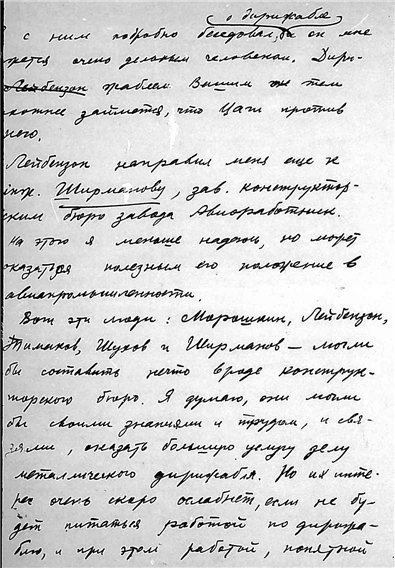 о дирижабле
я с ним подробно беседовал, он мне
жется очень деловым человеком. Дири-
Лейбензон жаблем Вашим он тем
займется, что Цаги против
него.
Лейбензон направил меня еще к
инж. Ширманову, зав. конструктор-
ским бюро завода Авиоработник.
На этого я меньше надеюсь, но может
оказаться полезным его положение в
авиапромышленности.
Вот эти люди: Марошкин, Лейбензон,
Тиманов, Шухов и Ширманов — могли
бы составить нечто вроде конструк-
торского бюро. Я думаю, они могли
бы своими знаниями и трудом, и свя-
зями, оказать большую услугу делу
металлического дирижабля. Но их инте-
рес очень скоро ослабнет, если не бу-
дет питаться работой по дирижа-
блю, и при этом работой, понятной